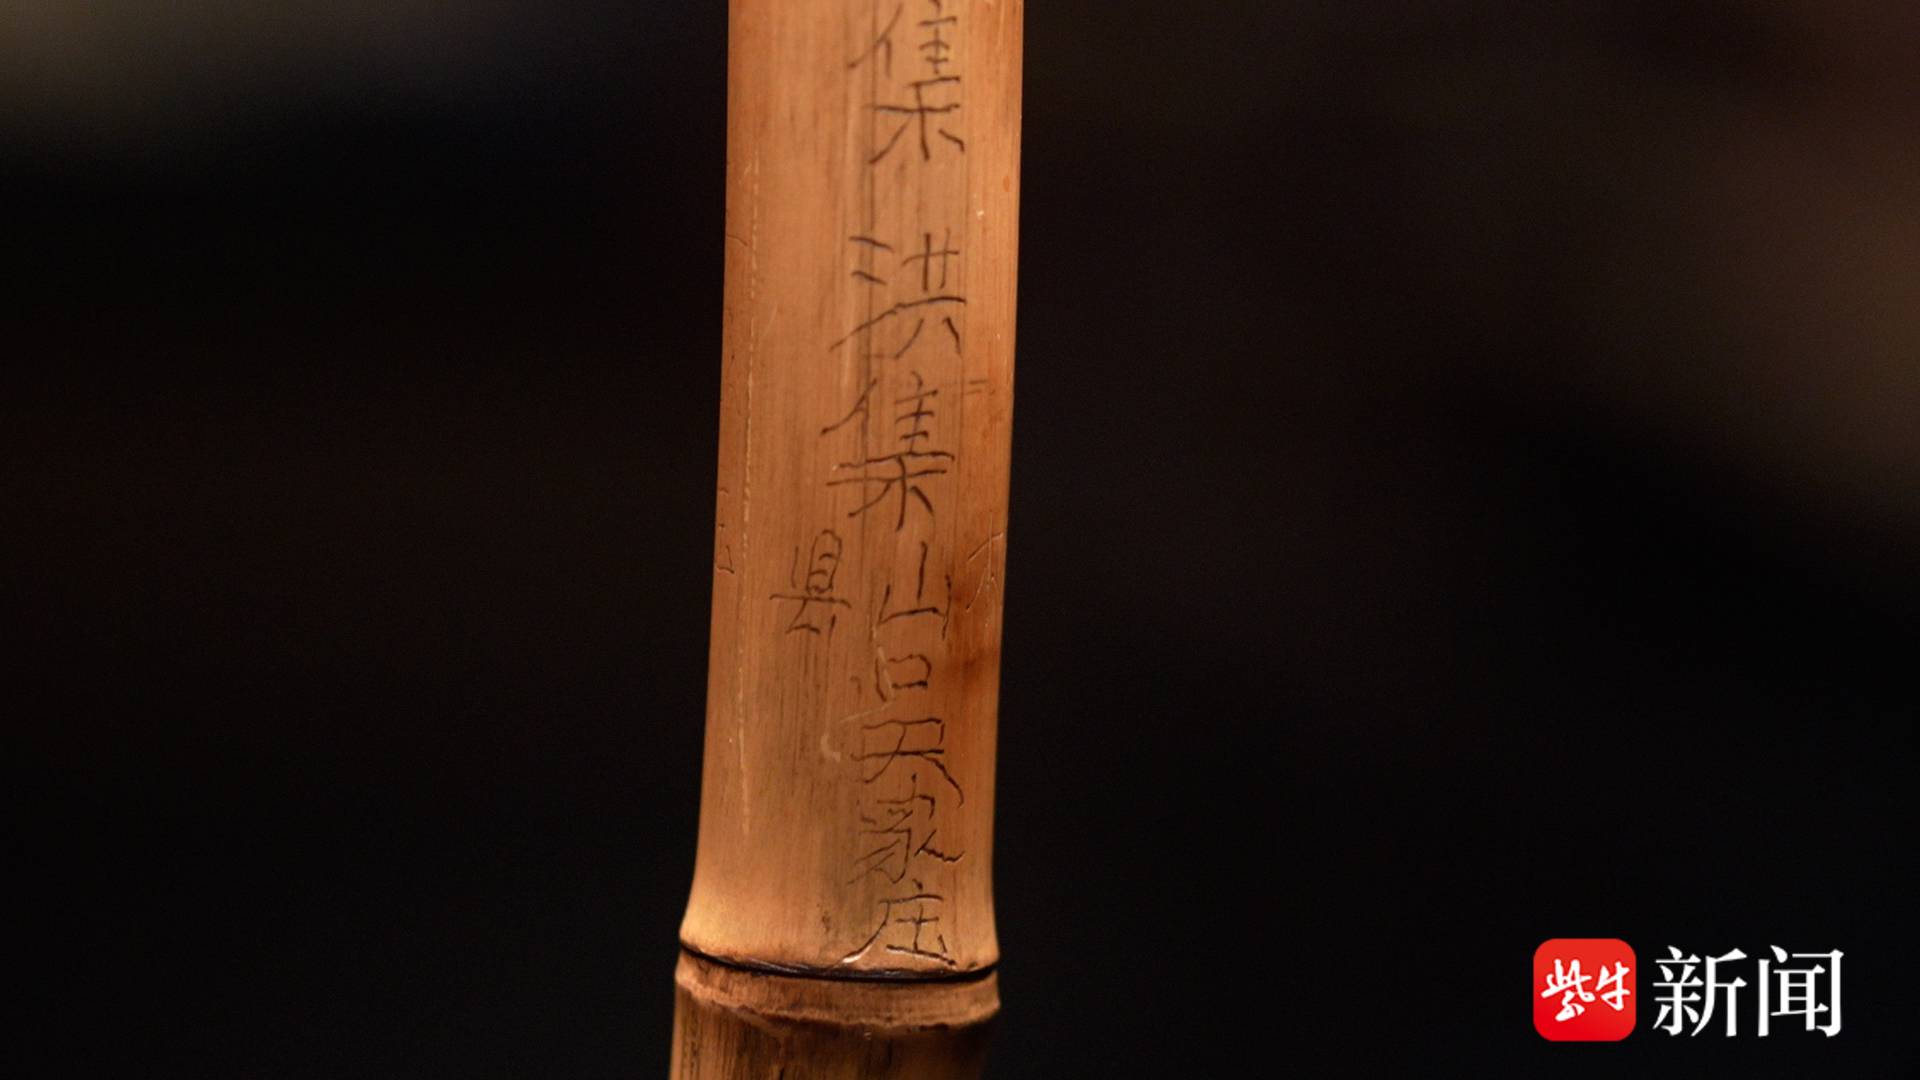 集 洪集山口天家庄
县
紫牛
新闻